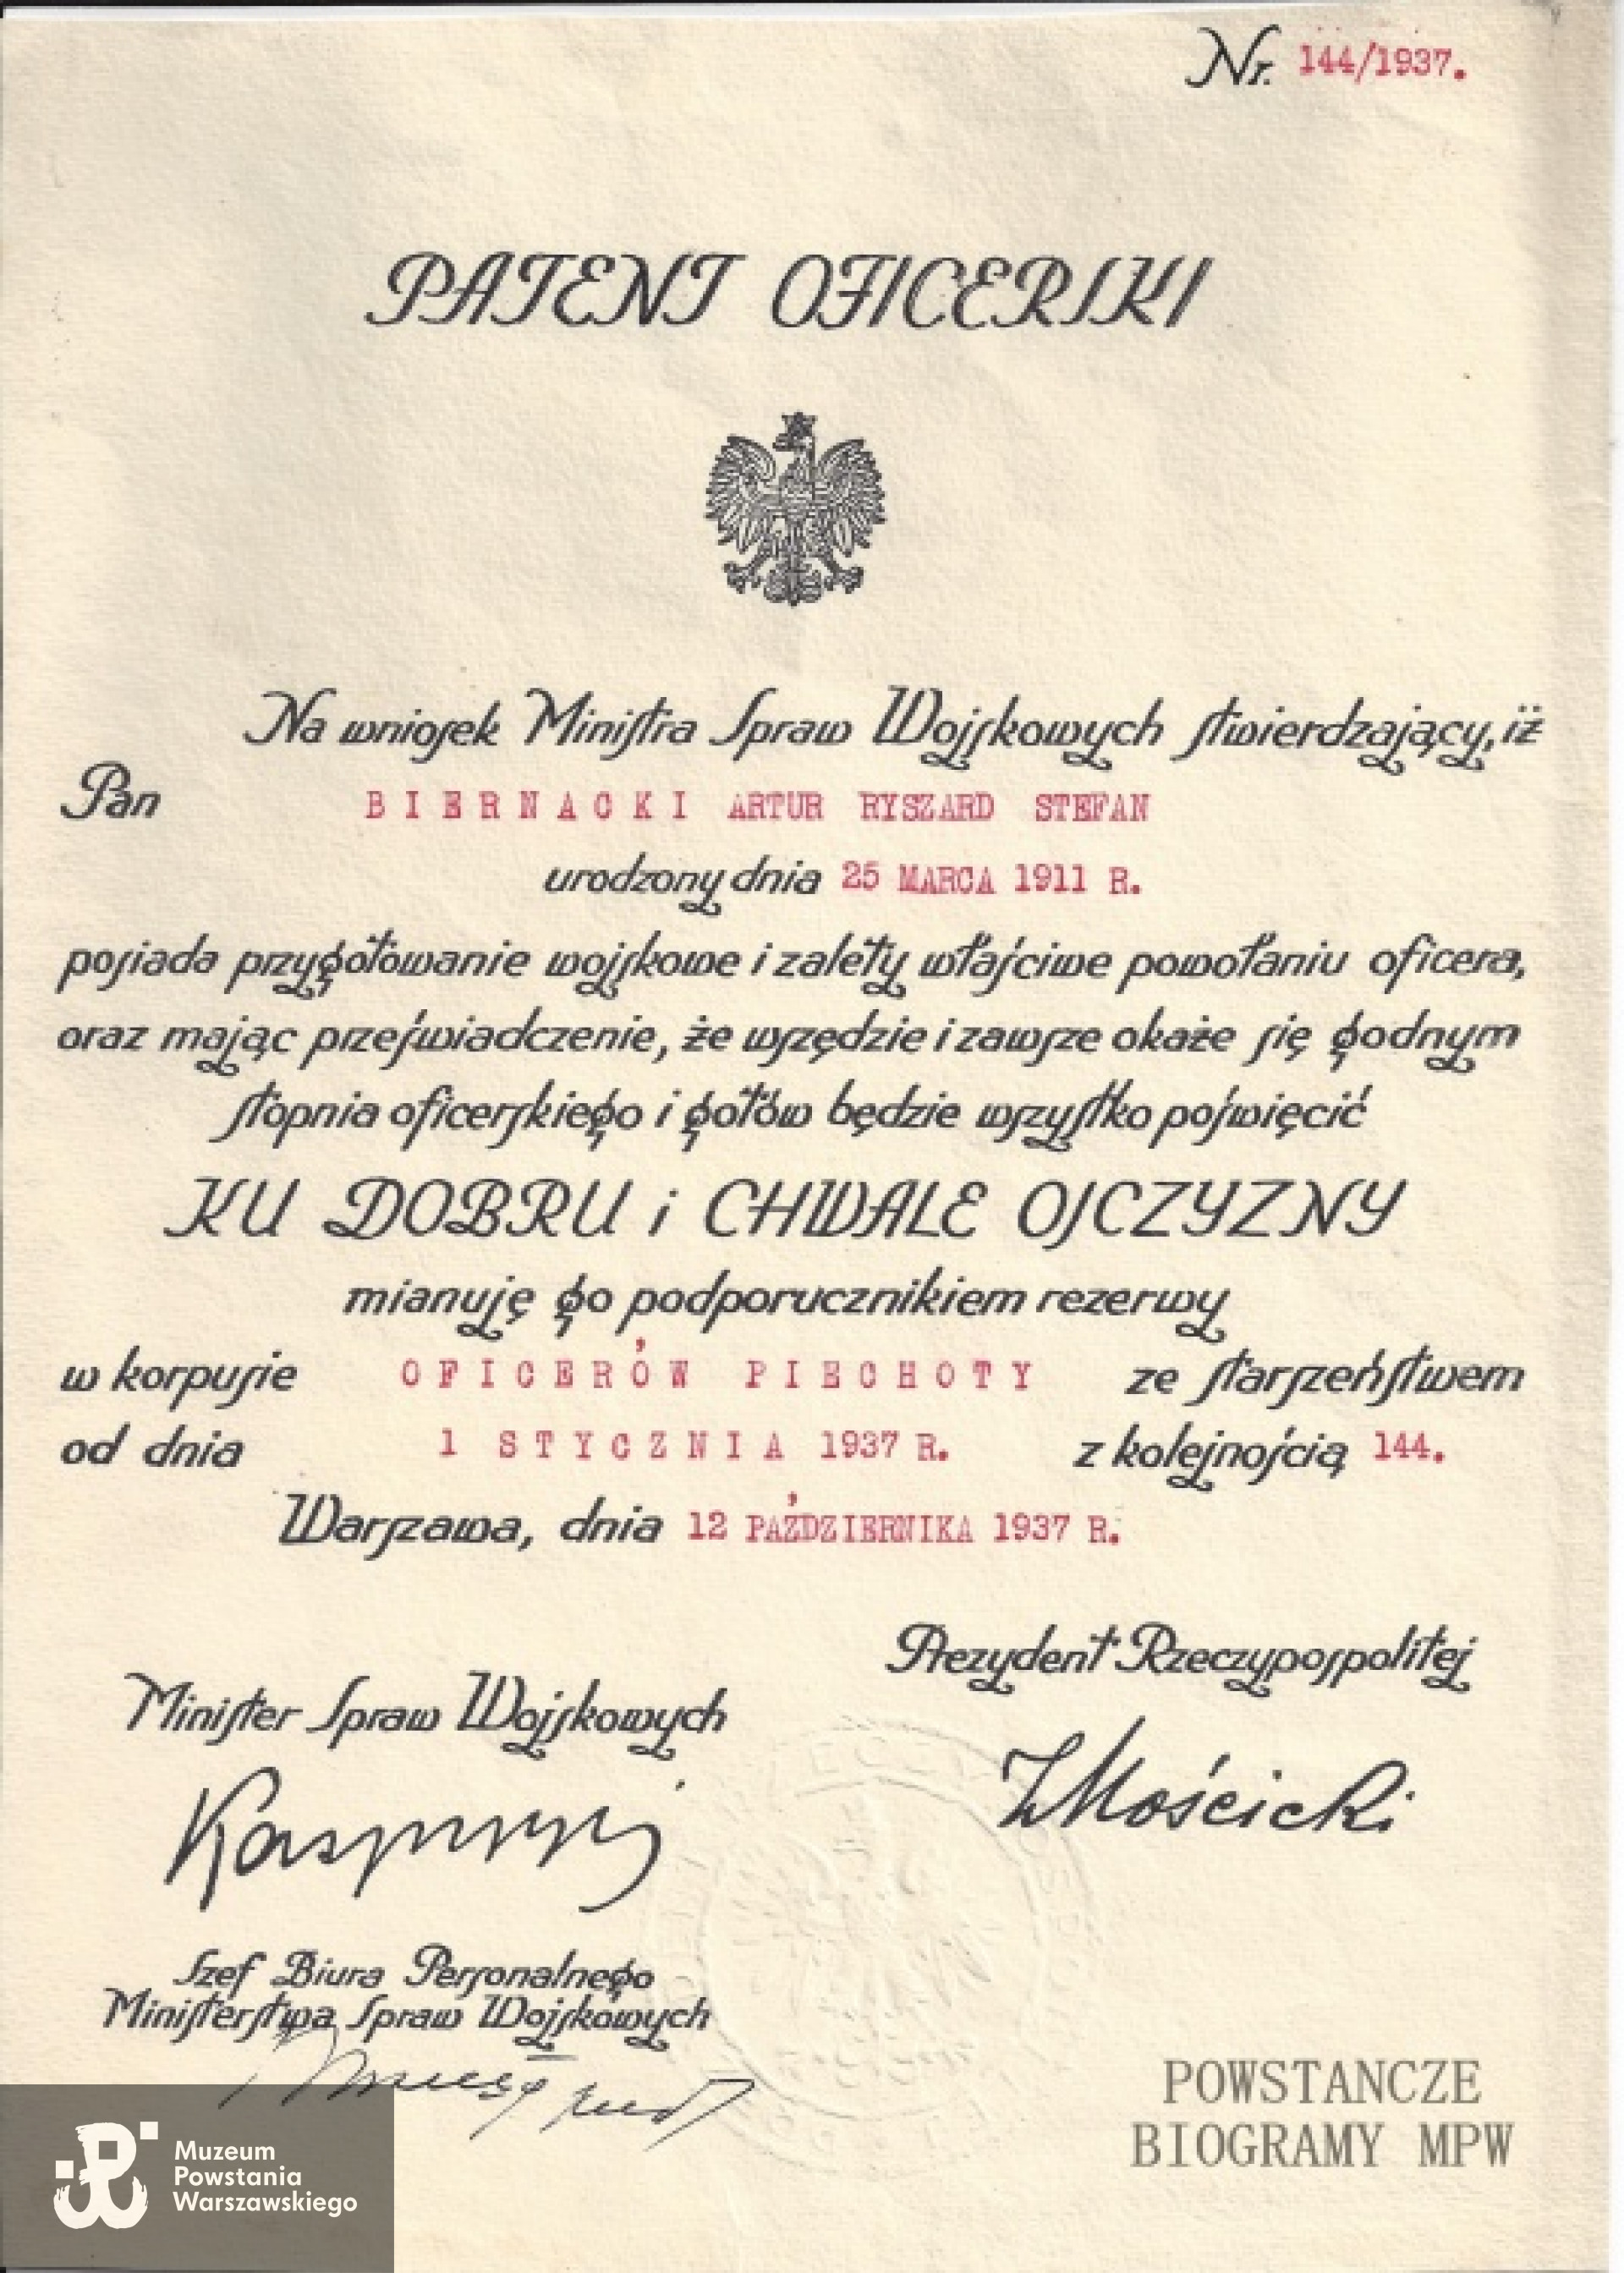 Nr. 144/1937.
PATENT OFICERSKI
Na wniosek Ministra Spraw Wojskowych stwierdzający, iż
Pan BIERNACKI ARTUR RYSZARD STEFAN
urodzony dnia 25 MARCA 1911 R.
posiada przygotowanie wojskowe i zalety właściwe powołaniu oficera,
oraz mając przeświadczenie, że wszędzie i zawsze okaże się godnym
stopnia oficerskiego i gotów będzie wszystko poświęcić
KU DOBRU i CHWALE OJCZYZNY
mianuję go podporucznikiem rezerwy
w korpusie OFICERÓW PIECHOTY ze starszeństwem
od dnia 1 STYCZNIA 1937 R. z kolejnością 144.
Warszawa, dnia 12 PAŹDZIERNIKA 1937 R.
Prezydent Rzeczypospolitej
Minister Spraw Wojskowych
IMościcki
Kasprzycki
Szef Biura Personalnego
Ministerstwa Spraw Wojskowych
POWSTANCZE
BIOGRAMY MPW
Muzeum
Powstania
Warszawskiego